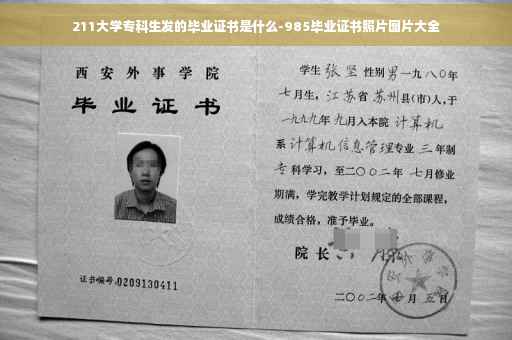 211大学专科生发的毕业证书是什么-985毕业证书照片图片大全
西安外事学院
毕业证书
证书编号:0209130411
学生 张坚 性别 男 一九八〇年
七月生，江苏省 苏州县(市)人,于
一九九九年 九月入本院 计算机
系 计算机信息管理专业 三 年制
专 科学习，至二〇〇二年 七月修业
期满，学完教学计划规定的全部课程，
成绩合格，准予毕业。
院 长
二〇〇二年 月 五日